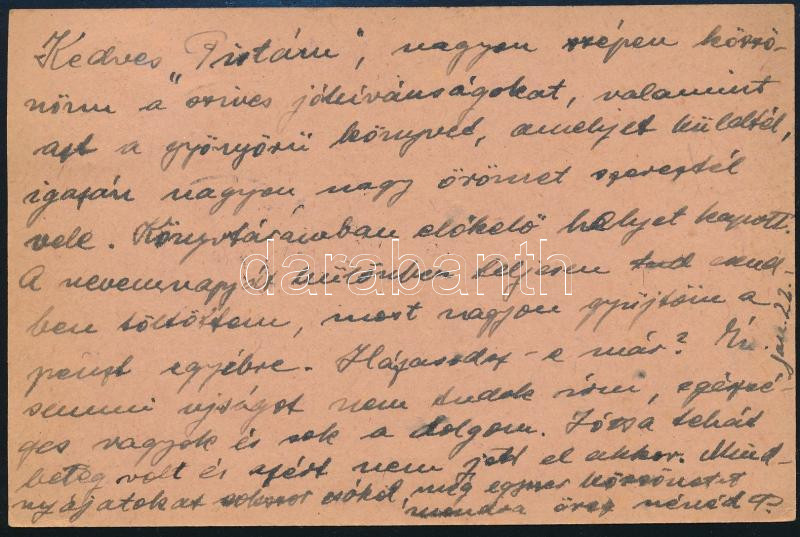 Kedves "Pistám", nagyon szépen köszö-
nöm a szives jókívánságokat, valamint
azt a gyönyörü könyvet, amelyet küldtél,
igazán nagyon nagy örömet szereztél
vele. Könyvtáramban előkelő helyet kapott.
A nevemnapját különben teljesen csend-
ben töltöttem, most nagyon gyüjtöm a
pénzt egyébre. Házasodsz-e már? Én
semmi ujságot nem tudok írni, egészsé-
ges vagyok és sok a dolgom. Józsa tehát
beteg volt és azért nem jött el akkor. Mind-
nyájatokat sokszor csókol, még egyszer köszönetet
mondva öreg nénéd P.
jan. 22.
darabanth